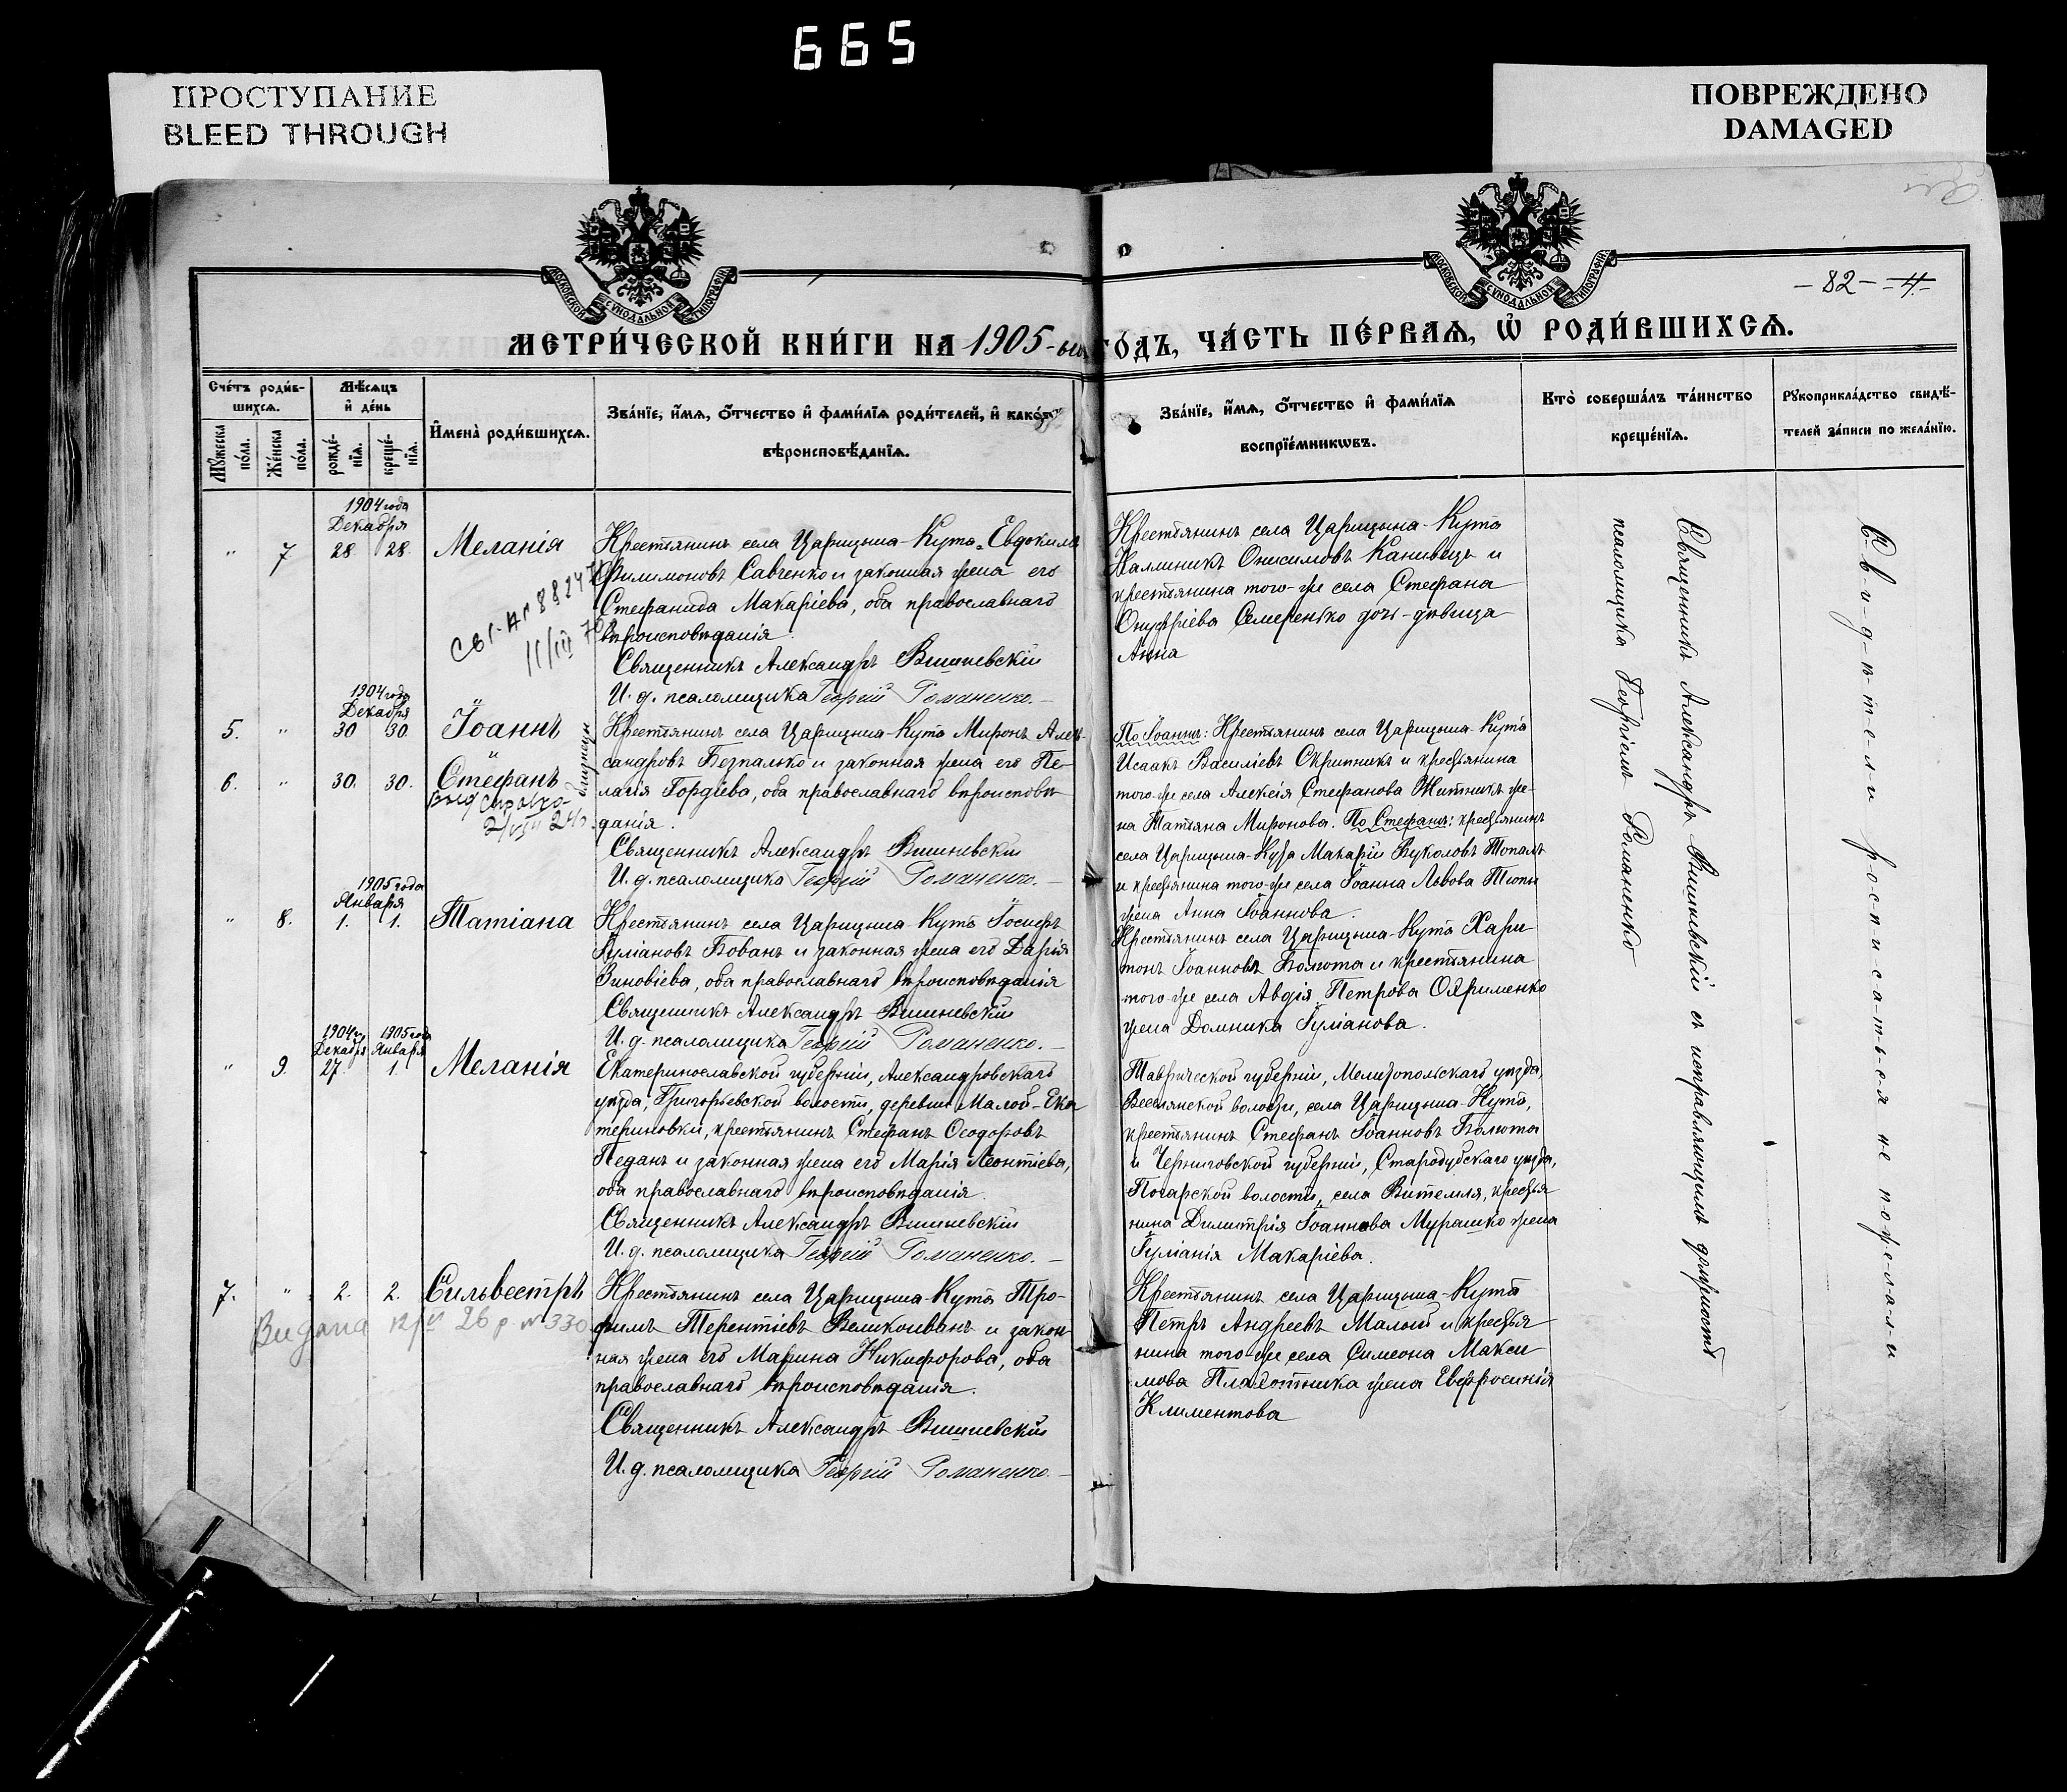 665
ПРОСТУПАНИЕ
BLEED THROUGH
ПОВРЕЖДЕНО
DAMAGED
МОСКОВСКОЙ СѴНОДАЛЬНОЙ ТИПОГРАФІИ
МОСКОВСКОЙ СѴНОДАЛЬНОЙ ТИПОГРАФІИ
- 82 - - 4 -
МЕТРИ́ЧЕСКОЙ КНИ́ГИ НА 1905-ый ГО́ДЪ, ЧА́СТЬ ПЕ́РВАѦ, Ѡ҆ РОДИ́ВШИХСѦ.
Сче́тъ роди́в-
шихсѧ.
Мѣ́сѧцъ
и҆ де́нь
Мꙋ́жеска
по́ла.
Же́нска
по́ла.
рожде́-
нїѧ.
креще́-
нїѧ.
И҆мена̀ роди́вшихсѧ.
Зва́нїе, и҆́мѧ, ѻ҆́тчество и҆ фами́лїѧ роди́телей, и҆ како́гѡ
вѣроисповѣ́данїѧ.
Зва́нїе, и҆́мѧ, ѻ҆́тчество и҆ фами́лїѧ
воспрїе́мникѡвъ.
Кто̀ соверша́лъ та́инство
креще́нїѧ.
Рꙋкоприкла́дство свидѣ́-
телей за́писи по жела́нїю.
1904 года
Декабря
" 7 28 28. Меланія
Крестьянинъ села Царицына-Кута Евдокимъ
Филимоновъ Савченко и законная жена его
Стефанида Макаріева, оба православнаго
вѣроисповѣданія
Священникъ Александръ Вишневскій
И. д. псаломщика Георгій Романенко.
Крестьянинъ села Царицына-Кута
Каллиникъ Онисимовъ Канивецъ и
крестьянина того-же села Стефана
Онуфріева Семеренько дочь-дѣвица
Анна
1904 года
Декабря
5. " 30 30. Іоаннъ
6. " 30. 30. Стефанъ
близнецы
Крестьянинъ села Царицына-Кута Миронъ Алек-
сандровъ Безпалько и законная жена его Пе-
лагія Гордіева, оба православнаго вѣроисповѣ-
данія.
Священникъ Александръ Вишневскій
И. д. псаломщика Георгій Романенко.
По Іоаннѣ: Крестьянинъ села Царицына-Кута
Исаакъ Василіевъ Скрипникъ и крестьянина
того-же села Алексія Стефанова Житникъ же-
на Татьяна Миронова. По Стефанѣ: крестьянинъ
села Царицына-Кута Макарій Вуколовъ Топалъ
и крестьянина того-же села Іоанна Львова
жена Анна Іоаннова.
1905 года
Января
" 8. 1. 1. Татіана
Крестьянинъ села Царицына-Кута Іосифъ
Іуліановъ Бованъ и законная жена его Дарія
Зиновіева, оба православнаго вѣроисповѣданія
Священникъ Александръ Вишневскій
И. д. псаломщика Георгій Романенко.
Крестьянинъ села Царицына-Кута Хари
тонъ Іоанновъ Болюта и крестьянина
того-же села Авдія Петрова
жена Домника Іуліанова.
1904 г. 1905 года
Декабря Января
" 9. 27. 1. Меланія
Екатеринославской губерніи, Александровскаго
уѣзда, Григорьевской волости, деревни Малой-Ека
териновки, крестьянинъ Стефанъ Ѳеодоровъ
Педанъ и законная жена его Марія Леонтіева,
оба православнаго вѣроисповѣданія.
Священникъ Александръ Вишневскій
И. д. псаломщика Георгій Романенко.
Таврической губерніи, Мелитопольскаго уѣзда,
волости, села Царицына-Кута,
крестьянинъ Стефанъ Іоанновъ Болюта
и Черниговской губерніи, Стародубскаго уѣзда,
Погарской волости, села Витемля, крестья
нина Димитрія Іоаннова Мурашко жена
Іуліанія Макаріева.
7. " 2. 2. Сильвестръ
Видана 12/VI 26 р № 330
Крестьянинъ села Царицына-Кута Тро-
фимъ Терентіевъ Великоиванъ и закон
ная жена его Марина Никифорова, оба
православнаго вѣроисповѣданія.
Священникъ Александръ Вишневскій
И. д. псаломщика Георгій Романенко.
Крестьянинъ села Царицына-Кута
Петръ Андреевъ Малый и крестья
нина того-же села Симеона Макси
мова Плахотника жена Евфросинія
Климентова
Священникъ Александръ Вишневскій съ исправляющимъ должность
псаломщика Георгіемъ Романенко
Свидѣтели росписаться не пожелали